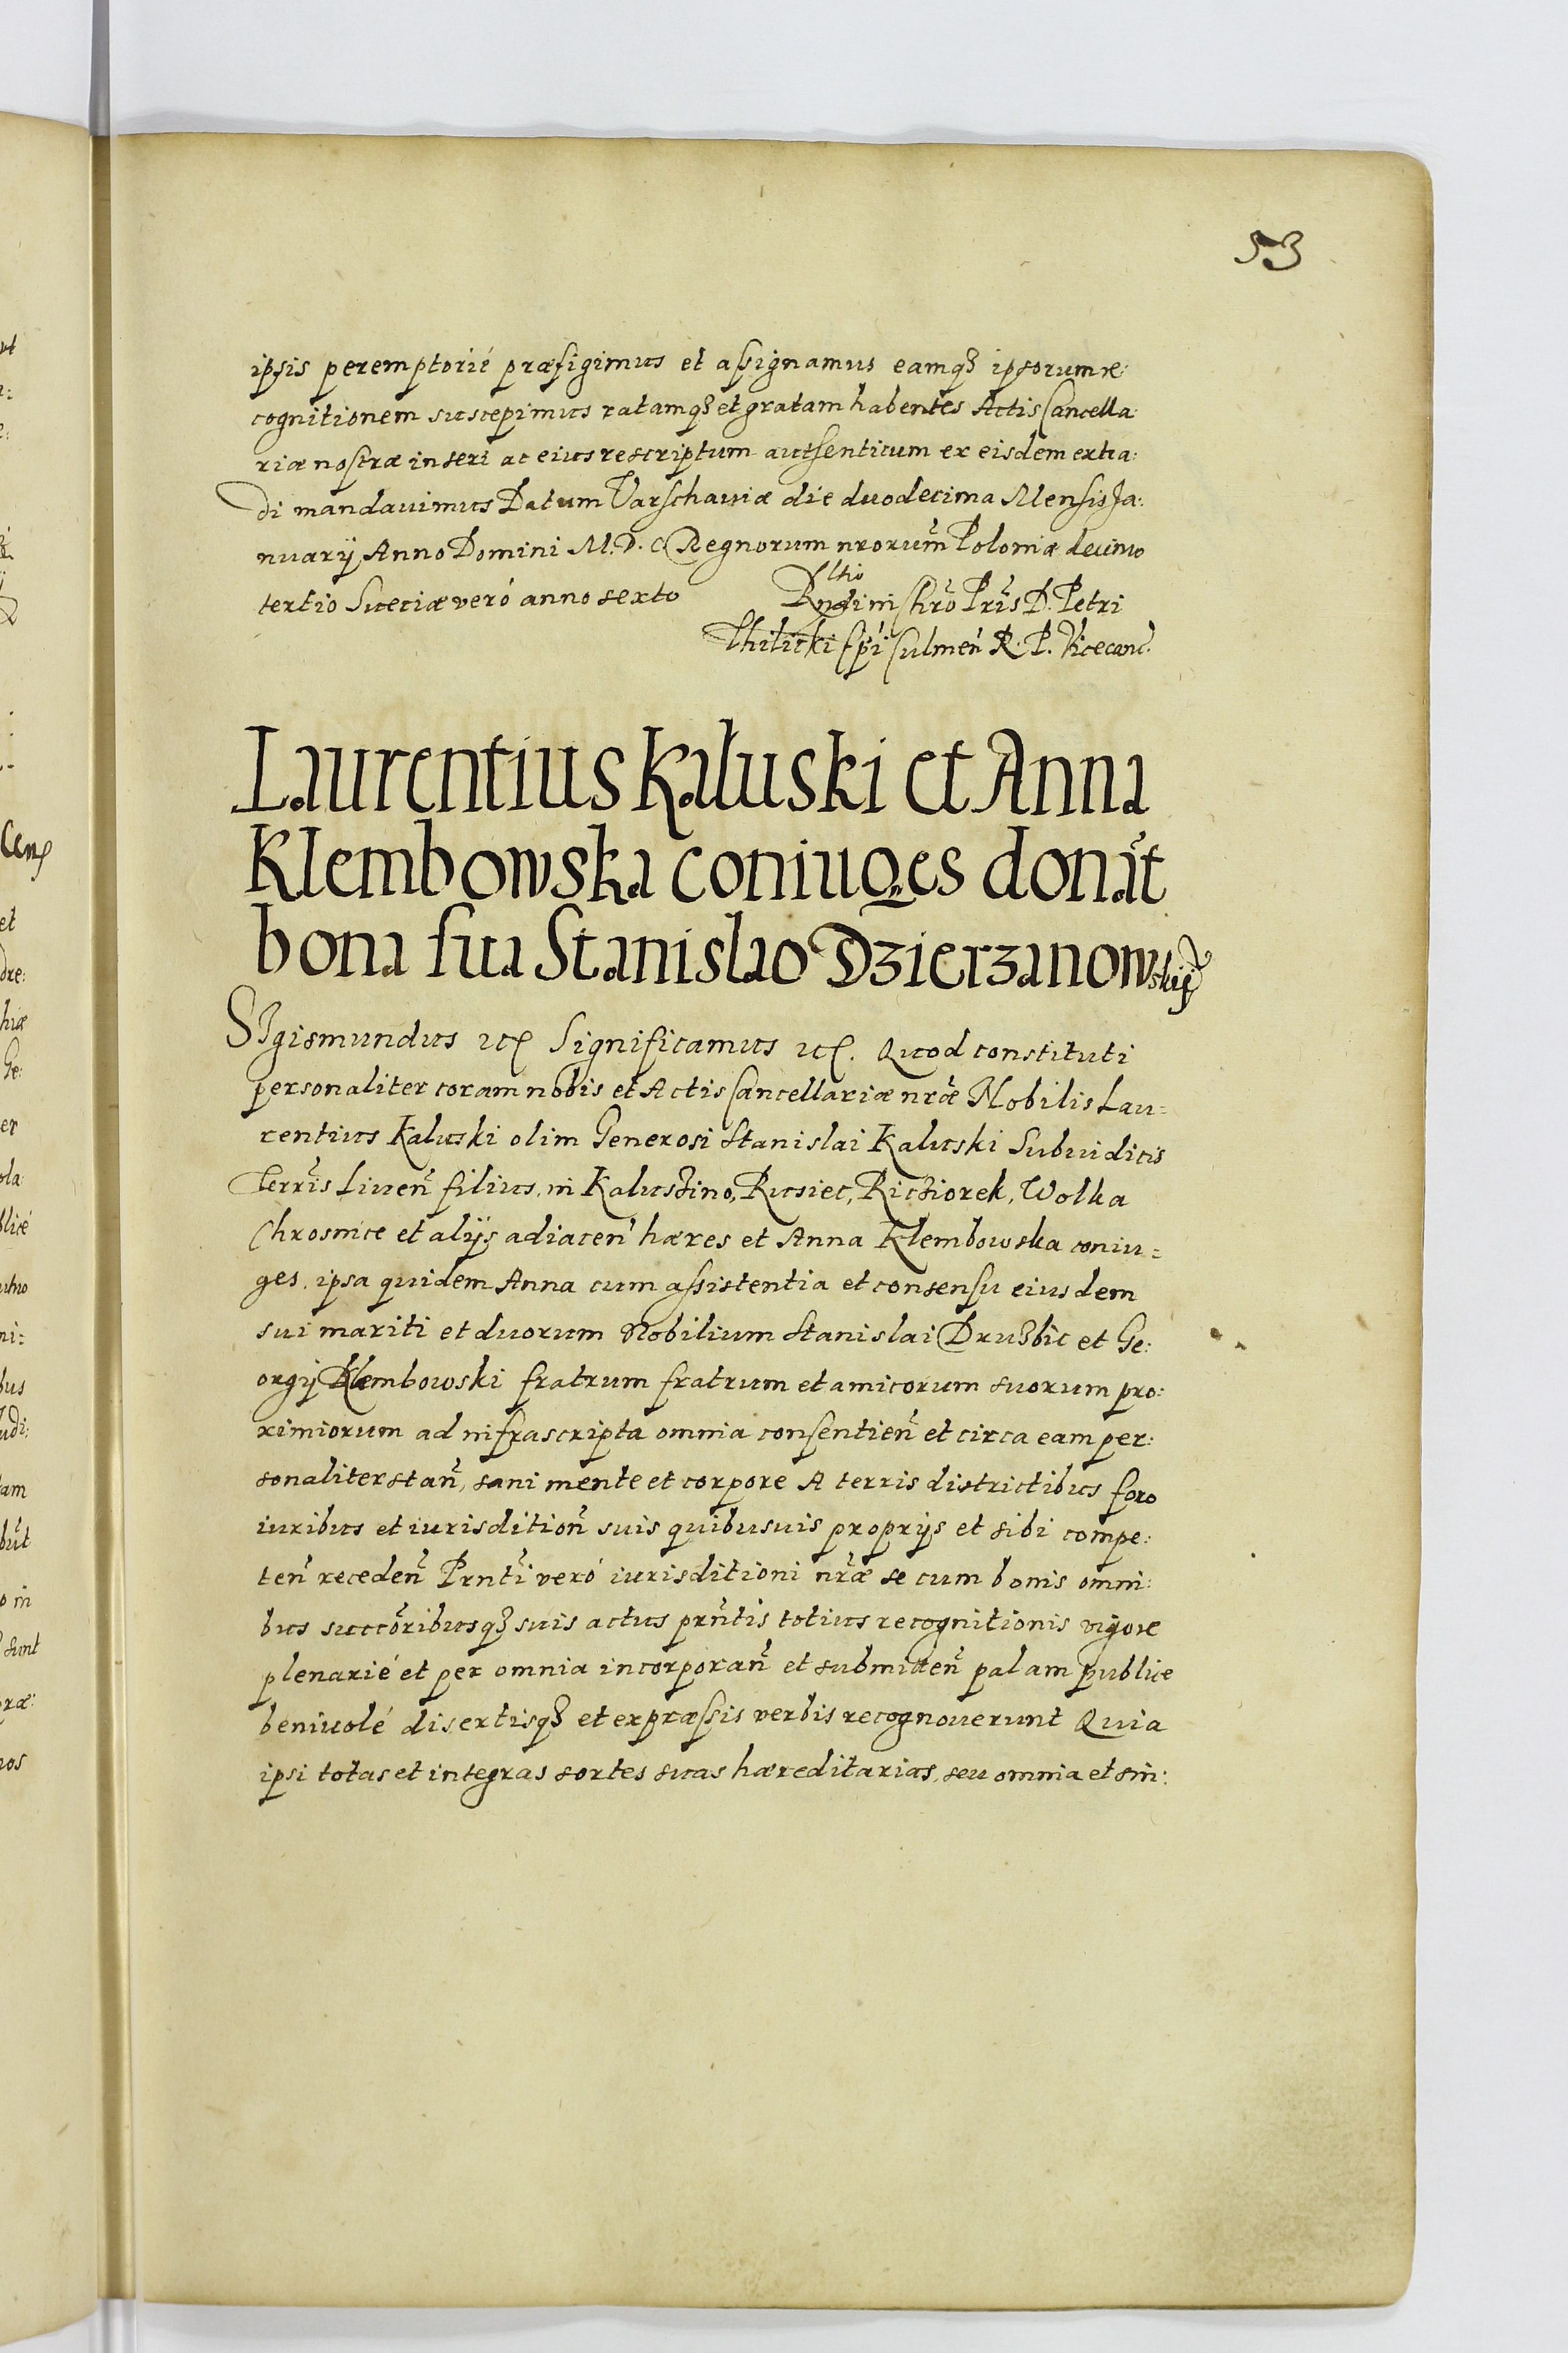 53
ipsis peremptorié præfigimus et assignamus eamqꝫ ipsorum re:
cognitionem suscepimus ratamqꝫ et gratam habentes Actis Cancella:
riæ nostræ inseri ac eius rescriptum autsenticum ex eisdem extra:
di mandauimus Datum Varschauiæ die duodecima Mensis Ja:
nuarij Anno Domini M.D.C Regnorum nrorum̃ Poloniæ decimo
tertio Sueciæ veró anno sexto
Rndi in Chrõ Prĩs D. Petri
Thilicki Epĩ Culmeñ R. P. Vicecanc.
Laurentius Kaluski et Anna
Klembowska coniuges donãt
bona sua Stanislao Dzierzanowskij
SIgismundus etc Significamus etc. Quod constituti
personaliter coram nobis et Actis Cancellariæ nrã Nobilis Lau=
rentius Kaluski olim Generosi Stanislai Kaluski Subiudicis
Terrĩs Liueñ filius, in Kalustino, Rusiec, Ricziorek, Wolka
Chrosnice et alijs adiaceñ hæres et Anna Klembowska coniu=
ges, ipsa quidem Anna cum assistentia et consensu eiusdem
sui mariti et duorum Nobilium Stanislai Druzbic et Ge:
orgij Klembowski fratrum fratrum et amicorum suorum pro:
ximiorum ad infrascripta omnia consentieñ et circa eam per:
sonaliter stañ, sani mente et corpore A terris districtibus foro
iuribus et iurisditioñ suis quibusuis proprijs et sibi compe:
teñ recedeñ Prntĩ veró iurisditioni nrãæ se cum bonis omni:
bus succõribusqꝫ suis actus prñtis totius recognitionis vigore
plenarié et per omnia incorporañ et submitteñ palam publice
beniuolé disertisqꝫ et expræssis verbis recognouerunt Quia
ipsi totas et integras sortes suas hæreditarias, seu omnia et sin: